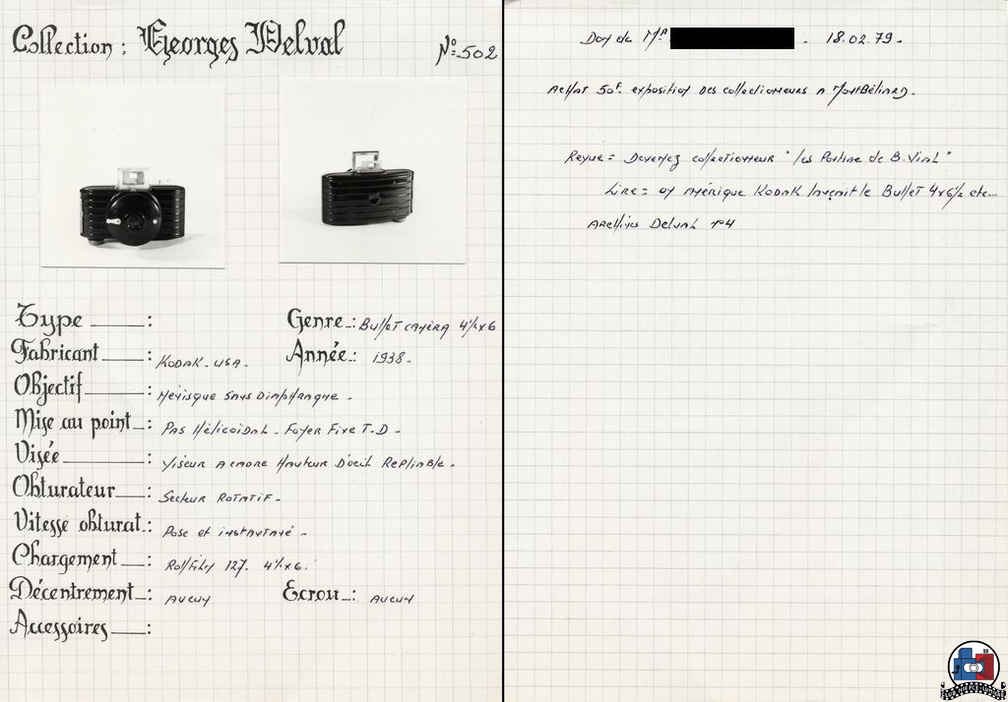 Collection : Georges Delval
N° 502
Type :
Genre : Bullet caméra 4½x6
Fabricant : Kodak - USA.
Année : 1938 -
Objectif : Ménisque sans Diaphragme -
Mise au point : Pas Hélicoidal - Foyer Fixe T-D -
Visée : Viseur A cadre Hauteur D'oeil Repliable -
Obturateur : Secteur Rotatif -
Vitesse obturat : Pose et instantané -
Chargement : Rollfilm 127. 4½x6.
Décentrement : Aucun
Ecrou : Aucun
Accessoires :
Don de Mr - 18.02.79 -
Achat 50F. exposition Des collectionneurs A Montbéliard.
Revue = Devenez collectionneur "les de B. Vial"
Lire = en Amérique Kodak le Bullet 4x6½ etc...
Archives Delval n°4